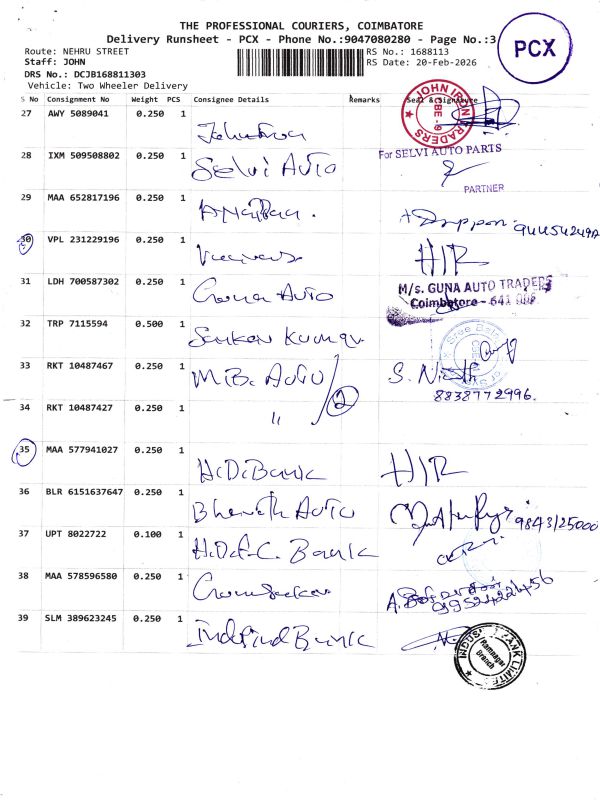 THE PROFESSIONAL COURIERS, COIMBATORE
Delivery Runsheet - PCX - Phone No.:9047080280 - Page No.:3
PCX
Route: NEHRU STREET
RS No.: 1688113
Staff: JOHN
RS Date: 20-Feb-2026
DRS No.: DCJB168811303
Vehicle: Two Wheeler Delivery
S No Consignment No Weight PCS Consignee Details Remarks Seal & Signature
27 AWY 5089041 0.250 1
JOHN IRON TRADERS CBE - 9
28 IXM 509508802 0.250 1 Selvi Auto
For SELVI AUTO PARTS
PARTNER
29 MAA 652817196 0.250 1
30 VPL 231229196 0.250 1 H/R
31 LDH 700587302 0.250 1 Guna Auto
M/s. GUNA AUTO TRADERS
Coimbatore - 641 009
32 TRP 7115594 0.500 1 Senken Kumar
33 RKT 10487467 0.250 1 M.B. Auto 2 S. Nisth
8838772996.
34 RKT 10487427 0.250 1 "
35 MAA 577941027 0.250 1 H.D. Bank H/R
36 BLR 6151637647 0.250 1 Bharath Auto 9843125000
37 UPT 8022722 0.100 1 H.D.F.C. Bank
38 MAA 578596580 0.250 1
9952422456
39 SLM 389623245 0.250 1 Indusind Bank
INDUSIND BANK LIMITED
Ramnagar
Branch